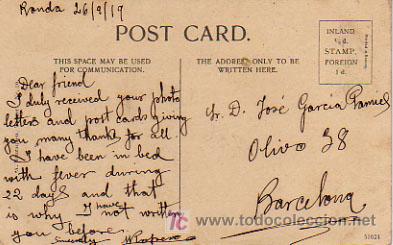 Ronda 26/9/19
POST CARD.
THIS SPACE MAY BE USED
FOR COMMUNICATION.
THE ADDRESS ONLY TO BE
WRITTEN HERE.
INLAND
½d.
STAMP.
FOREIGN
1 d.
Dear friend
I duly received your photo
letters and post cards giving
you many thanks for all
I have been in bed
with fever during
22 days and that
is why I have not written
you before.
Sr. D. José Garcia
Olivo 38
Barcelona
51021
todocoleccion
www.todocoleccion.net